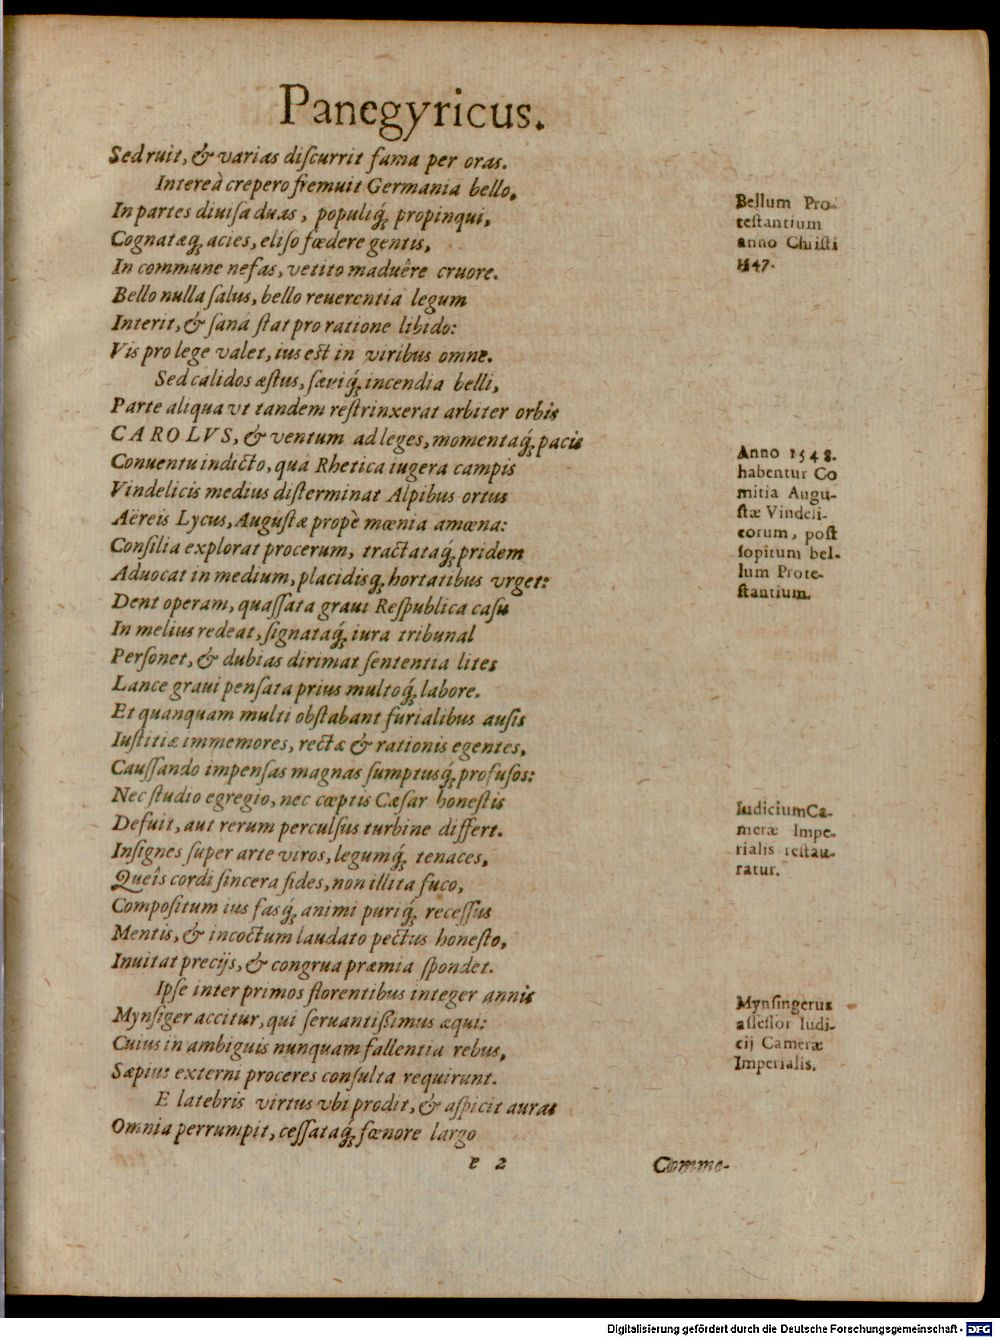 Panegyricus.
Sed ruit, & varias diſcurrit fama per oras.
Intereà crepero fremuit Germania bello,
In partes diuiſa duas, populiq́; propinqui,
Cognatæq́; acies, eliſo fœdere gentis,
In commune nefas, vetito maduêre cruore.
Bello nulla ſalus, bello reuerentia legum
Interit, & ſana ſtat pro ratione libido:
Vis pro lege valet, ius eſt in viribus omne.
Sed calidos æſtus, ſæviq́; incendia belli,
Parte aliqua vt tandem reſtrinxerat arbiter orbis
CAROLVS, & ventum ad leges, momentaq́; pacis
Conuentu indicto, quá Rhetica iugera campis
Vindelicis medius diſterminat Alpibus ortus
Aëreis Lycus, Auguſtæ propè mœnia amœna:
Conſilia explorat procerum, tractataq́; pridem
Aduocat in medium, placidisq́; hortatibus vrget:
Dent operam, quaſſata graui Reſpublica caſu
In melius redeat, ſignataq́; iura tribunal
Perſonet, & dubias dirimat ſententia lites
Lance graui penſata prius multoq́; labore.
Et quanquam multi obſtabant furialibus auſis
Iuſtitiæ immemores, rectæ & rationis egentes,
Cauſſando impenſas magnas ſumptusq́; profuſos:
Nec ſtudio egregio, nec cœptis Cæſar honeſtis
Defuit, aut rerum perculſus turbine differt.
Inſignes ſuper arte viros, legumq́; tenaces,
Queîs cordi ſincera fides, non illita fuco,
Compoſitum ius fasq́; animi puriq́; receſſus
Mentis, & incoctum laudato pectus honeſto,
Inuitat precijs, & congrua præmia ſpondet.
Ipſe inter primos florentibus integer annis
Mynſiger accitur, qui ſeruantiſſimus æqui:
Cuius in ambiguis nunquam fallentia rebus,
Sæpius externi proceres conſulta requirunt.
E latebris virtus vbi prodit, & aſpicit auras
Omnia perrumpit, ceſſataq́; fœnore largo
e 2
Comme-
Bellum Pro-
teſtantium
anno Chriſti
1547.
Anno 1548.
habentur Co
mitia Augu-
ſtæ Vindeli-
corum, poſt
ſopitum bel-
lum Prote-
ſtantium.
Iudicium Ca-
meræ Impe-
rialis reſtau-
ratur.
Mynſingerus
aſſeſſor Iudi-
cij Cameræ
Imperialis.
Digitalisierung gefördert durch die Deutsche Forschungsgemeinschaft - DFG